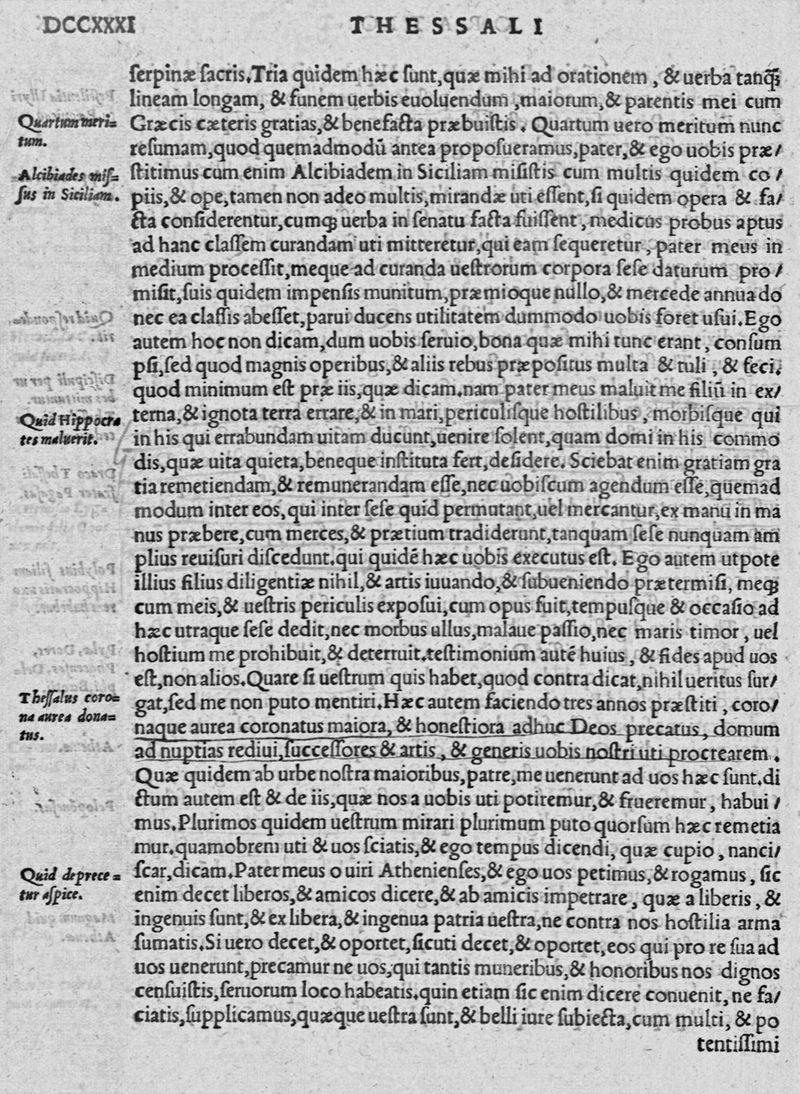 DCCXXXI THESSALI
serpinæ sacris.Tria quidem hæc sunt,quæ mihi ad orationem , & uerba tanꝗ̃
lineam longam, & funem uerbis euoluendum ,maiorum,& parentis mei cum
Quartum meri=
tum.
Græcis cæteris gratias,& benefacta præbuistis . Quartum uero meritum nunc
resumam,quod quemadmodũ antea proposueramus,pater,& ego uobis præ/
Alcibiades mis=
sus in Siciliam.
stitimus cum enim Alcibiadem in Siciliam misistis cum multis quidem co /
piis,& ope,tamen non adeo multis,mirandæ uti essent,si quidem opera & fa/
cta considerentur,cumqꝫ uerba in senatu facta fuissent , medicus probus aptus
ad hanc classem curandam uti mitteretur,qui eam sequeretur , pater meus in
medium processit,meque ad curanda uestrorum corpora sese daturum pro /
misit,suis quidem impensis munitum,præmioque nullo,& mercede annua do
nec ea classis abesset,parui ducens utilitatem dummodo uobis foret usui.Ego
autem hoc non dicam,dum uobis seruio,bona quæ mihi tunc erant , consum
psi,sed quod magnis operibus,& aliis rebus præpositus multa & tuli , & feci.
quod minimum est præ iis,quæ dicam.nam pater meus maluit me filiũ in ex/
Quid Hippocra
tes maluerit.
terna,& ignota terra errare,& in mari,periculisque hostilibus , morbisque qui
in his qui errabundam uitam ducunt,uenire solent,quam domi in his commo
dis,quæ uita quieta,beneque instituta fert,desidere. Sciebat enim gratiam gra
tia remetiendam,& remunerandam esse,nec uobiscum agendum esse,quemad
modum inter eos,qui inter sese quid permutant,uel mercantur,ex manu in ma
nus præbere,cum merces,& prætium tradiderunt,tanquam sese nunquam am
plius reuisuri discedunt.qui quidẽ hæc uobis executus est. Ego autem utpote
illius filius diligentiæ nihil,& artis iuuando,& subueniendo prætermisi, meqꝫ
cum meis,& uestris periculis exposui,cum opus fuit,tempusque & occasio ad
hæc utraque sese dedit,nec morbus ullus,malaue passio,nec maris timor , uel
hostium me prohibuit,& deterruit.testimonium autẽ huius , & fides apud uos
est,non alios.Quare si uestrum quis habet,quod contra dicat,nihil ueritus sur/
Thessalus coro=
na aurea dona=
tus.
gat,sed me non puto mentiri.Hæc autem faciendo tres annos præstiti , coro/
naque aurea coronatus maiora, & honestiora adhuc Deos precatus, domum
ad nuptias rediui,successores & artis , & generis uobis nostri uti procrearem .
Quæ quidem ab urbe nostra maioribus,patre,me uenerunt ad uos hæc sunt.di
ctum autem est & de iis,quæ nos a uobis uti potiremur,& frueremur, habui /
mus.Plurimos quidem uestrum mirari plurimum puto quorsum hæc remetia
mur.quamobrem uti & uos sciatis,& ego tempus dicendi, quæ cupio, nanci/
Quid deprece=
tur aspice.
scar,dicam.Pater meus o uiri Athenienses,& ego uos petimus,& rogamus , sic
enim decet liberos,& amicos dicere,& ab amicis impetrare , quæ a liberis , &
ingenuis sunt,& ex libera,& ingenua patria uestra,ne contra nos hostilia arma
sumatis.Si uero decet,& oportet,sicuti decet,& oportet,eos qui pro re sua ad
uos uenerunt,precamur ne uos,qui tantis muneribus,& honoribus nos dignos
censuistis,seruorum loco habeatis.quin etiam sic enim dicere conuenit, ne fa/
ciatis,supplicamus,quæque uestra sunt,& belli iure subiecta,cum multi, & po
tentissimi